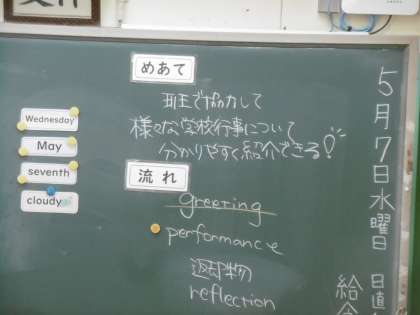 めあて
班で協力して
様々な学校行事について
分かりやすく紹介できる!
流れ
greeting
performance
返却物
reflection
Wednesday
May
seventh
cloudy
5月7日水曜日
日直
給